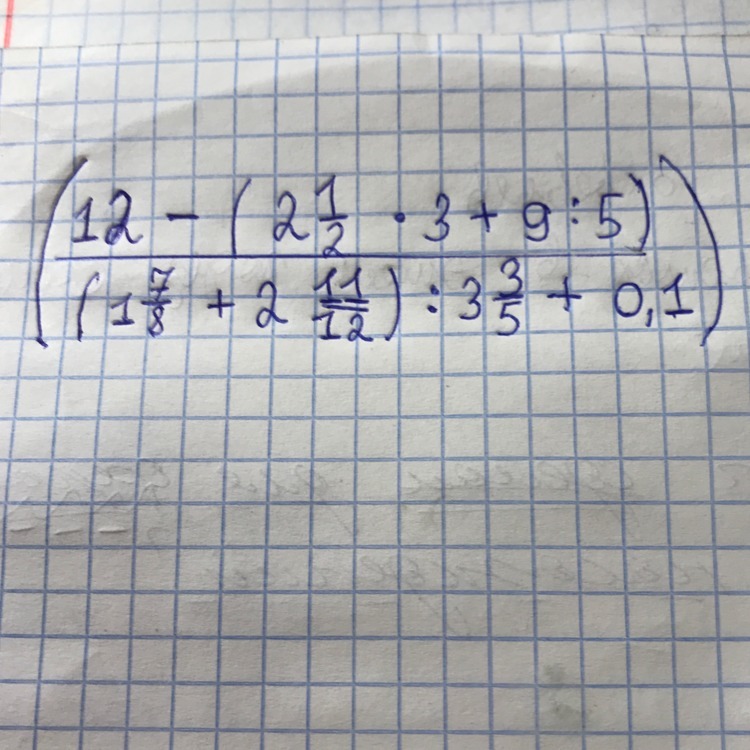 ( 12 - ( 2 1/2 · 3 + 9 : 5 )
( 1 7/8 + 2 11/12 ) : 3 3/5 + 0,1 )